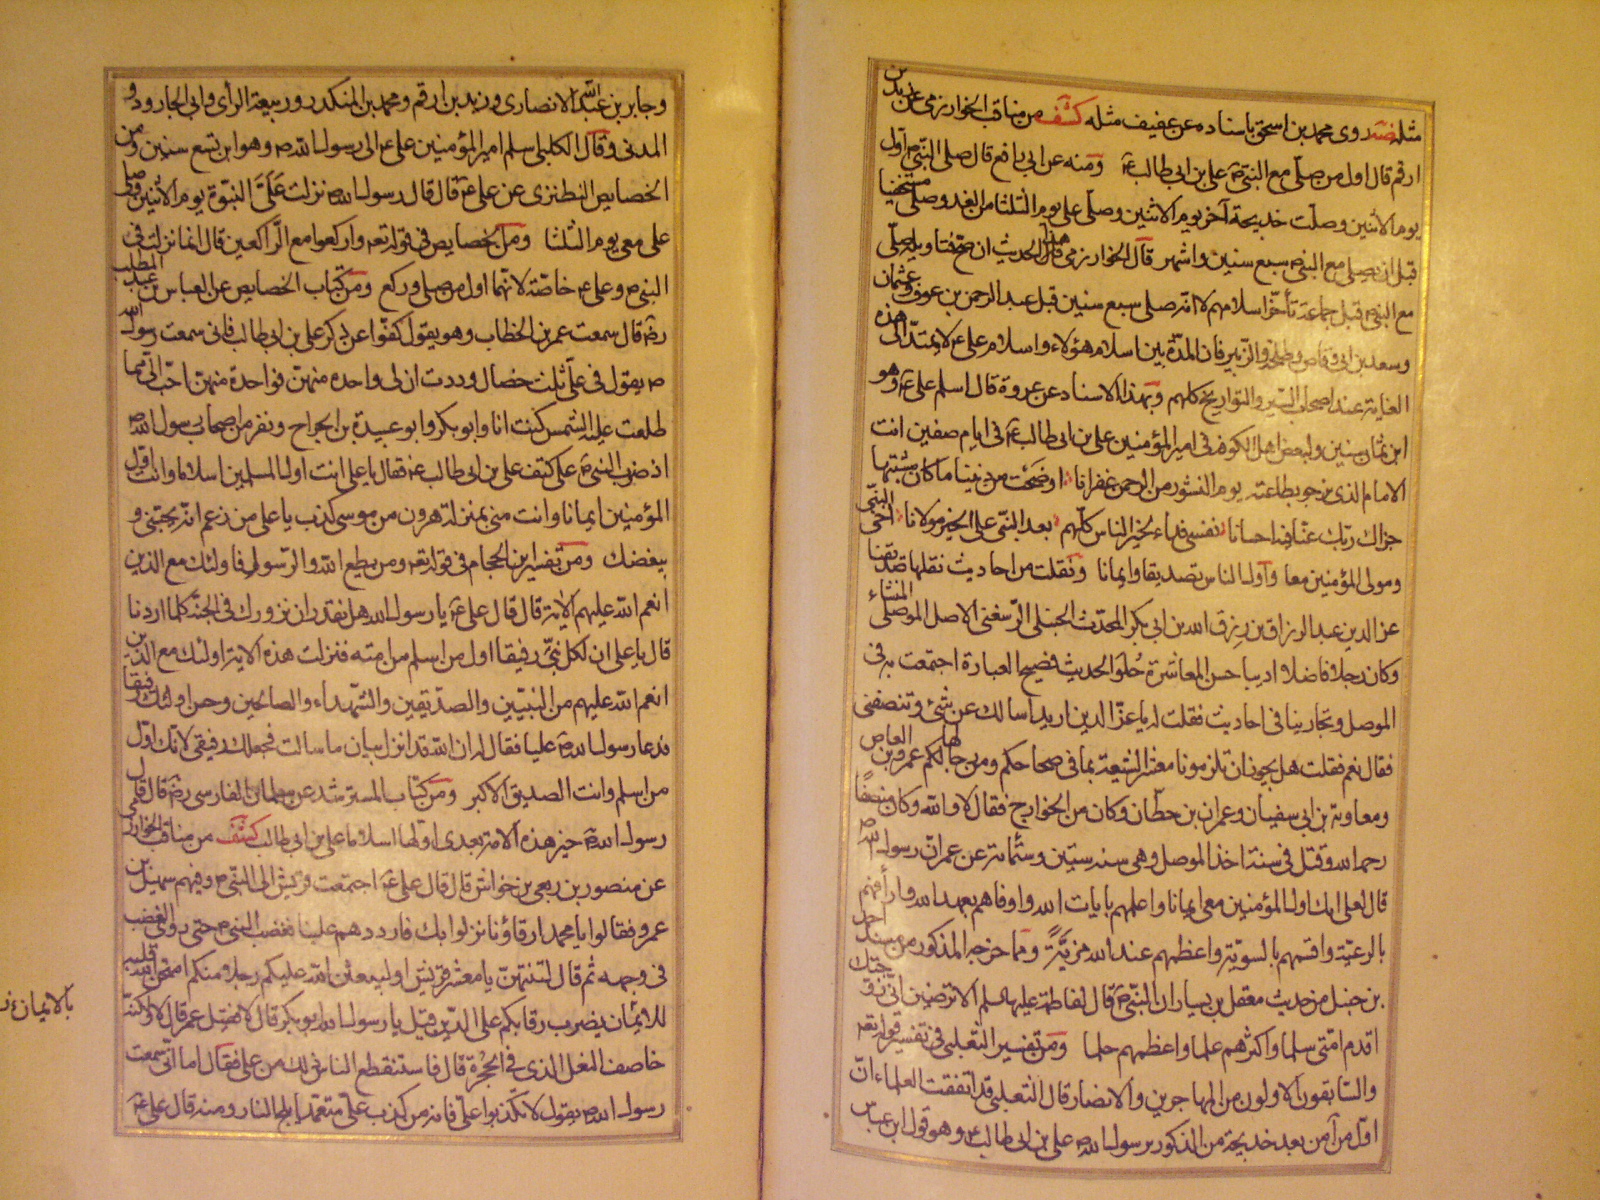 مثله ضه روى محمد بن اسحق باسناده عن عفيف مثله كشف من مناقب الخوارزمى عن زيد بن
ارقم قال اول من صلى مع النبى ص على بن ابى طالب ع ومنه عن ابى رافع قال صلى النبى ص اول
يوم الاثنين وصلت خديجة آخر يوم الاثنين وصلى على يوم الثلثا من الغد وصلى مستخفيا
قبل ان يصلى مع النبى ص سبع سنين واشهر قال الخوارزمى هذا الحديث ان صح فتاويله صلى
مع النبى ص قبل جماعة تأخر اسلامهم لا انه صلى سبع سنين قبل عبد الرحمن بن عوف وعثمان
وسعد بن ابى وقاص وطلحة والزبير فان المدة بين اسلام هؤلاء واسلام على ع لا يمتد الى هذه
الغاية عند اصحاب السير والتواريخ كلهم وبهذا الاسناد عن عروة قال اسلم على ع وهو
ابن ثمان سنين ولبعض اهل الكوفة فى امير المؤمنين على بن ابى طالب ع فى ايام صفين انت
الامام الذى نرجو بطاعته يوم النشور من الرحمن غفرانا اوضحت من ديننا ما كان مشتبها
جزاك ربك عنا فيه احسانا نفسى فداء لخير الناس كلهم بعد النبى على الخير مولانا اخى النبى
ومولى المؤمنين معا واول الناس تصديقا وايمانا ونقلت من احاديث نقلها صديقنا
عز الدين عبد الرزاق بن رزق الله بن ابى بكر المحدث الحنبلى الرسعنى الاصل الموصلى المنشاء
وكان رجلا فاضلا اديبا حسن المعاشرة حلو الحديث فصيح العبارة اجتمعت به فى
الموصل وتجارينا فى احاديث فقلت له يا عز الدين اريد اسالك عن شئ وتنصفنى
فقال نعم فقلت هل يجوز ان تلزمونا معشر الشيعة بما فى صحاحكم ومن رجالها عمرو بن العاص
ومعاوية بن ابى سفيان وعمران بن حطان وكان من الخوارج فقال لا والله وكان منصفا
رحمه الله وقتل فى سنة اخذ الموصل وهى سنة ستين وستمائة عن عمران رسول الله ص
قال لعلى انك اول المؤمنين معى ايمانا واعلمهم بايات الله واوفاهم بعهد الله وارأفهم
بالرعية واقسمهم بالسوية واعظمهم عند الله مزية ومما خرجه المذكور من مسند احمد
بن حنبل من حديث معقل بن يسار ان النبى ص قال لفاطمة عليها السلم الا ترضين انى زوجتك
اقدم امتى سلما واكثرهم علما واعظمهم حلما ومن تفسير الثعلبى فى تفسير قوله تعه
والسابقون الاولون من المهاجرين والانصار قال الثعلبى قد اتفقت العلماء ان
اول من آمن بعد خديجة من الذكور برسول الله ص على بن ابى طالب ع وهو قول ابن عباس
وجابر بن عبد الله الانصارى وزيد بن ارقم ومحمد بن المنكدر وربيعة الرأى وابى الجارود و
المدنى وقال الكلبى اسلم امير المؤمنين على ع الى رسول الله ص وهو ابن تسع سنين ومن
الخصايص النطنزى عن على ع قال قال رسول الله ص نزلت على النبوة يوم الاثنين وصلى
على معى يوم الثلثا ومن الخصايص فى قوله تعه واركعوا مع الراكعين قال انما نزلت فى
النبى ص وعلى ع خاصة لانهما اول من صلى وركع ومن كتاب الخصايص عن العباس بن عبد المطلب
رضه قال سمعت عمر بن الخطاب وهو يقول كفوا عن ذكر على بن ابى طالب فانى سمعت رسول الله
ص يقول فى على ثلث خصال وددت ان لى واحدة منهن فواحدة منهن احب الى مما
طلعت عليه الشمس كنت انا وابو بكر وابو عبيدة بن الجراح ونفر من اصحاب رسول الله ص
اذ ضرب النبى ص على كتف على بن ابى طالب ع فقال يا على انت اول المسلمين اسلاما وانت اول
المؤمنين ايمانا وانت منى بمنزلة هرون من موسى كذب يا على من زعم انه يحبنى و
يبغضك ومن تفسير ابن الحجام فى قوله تعه ومن يطع الله والرسول فاولئك مع الذين
انعم الله عليهم الاية قال قال على ع يا رسول الله هل نقدر ان نزورك فى الجنة كلما اردنا
قال يا على ان لكل نبى رفيقا اول من اسلم من امته فنزلت هذه الاية اولئك مع الذين
انعم الله عليهم من النبيين والصديقين والشهداء والصالحين وحسن اولئك رفيقا
فدعا رسول الله ص عليا فقال له ان الله قد انزل بيان ما سالت فجعلك رفيقى لانك اول
من اسلم وانت الصديق الاكبر ومن كتاب المسترشد عن سلمان الفارسى رضه قال قال
رسول الله ص خير هذه الامة بعدى اولها اسلاما على بن ابى طالب كشف من مناقب الخوارزمى
عن منصور بن ربعى بن خراش قال قال على ع اجتمعت قريش الى النبى ص وفيهم سهيل بن
عمرو فقالوا يا محمد ارقاؤنا نزلوا بك فارددهم علينا فغضب النبى ص حتى رؤى الغضب
فى وجهه ثم قال لتنتهن يا معشر قريش او ليبعثن الله عليكم رجلا منكم امتحن الله قلبه
للايمان يضرب رقابكم على الدين قيل يا رسول الله ابو بكر قال لا فقيل عمر قال لا ولكنه
خاصف النعل الذى فى الحجرة قال فاستنقطع الناس ذلك من على فقال اما انى سمعت
رسول الله ص يقول لا تكذبوا على فانه من كذب على متعمدا يلج النار ومنه قال على ع
بالايمان